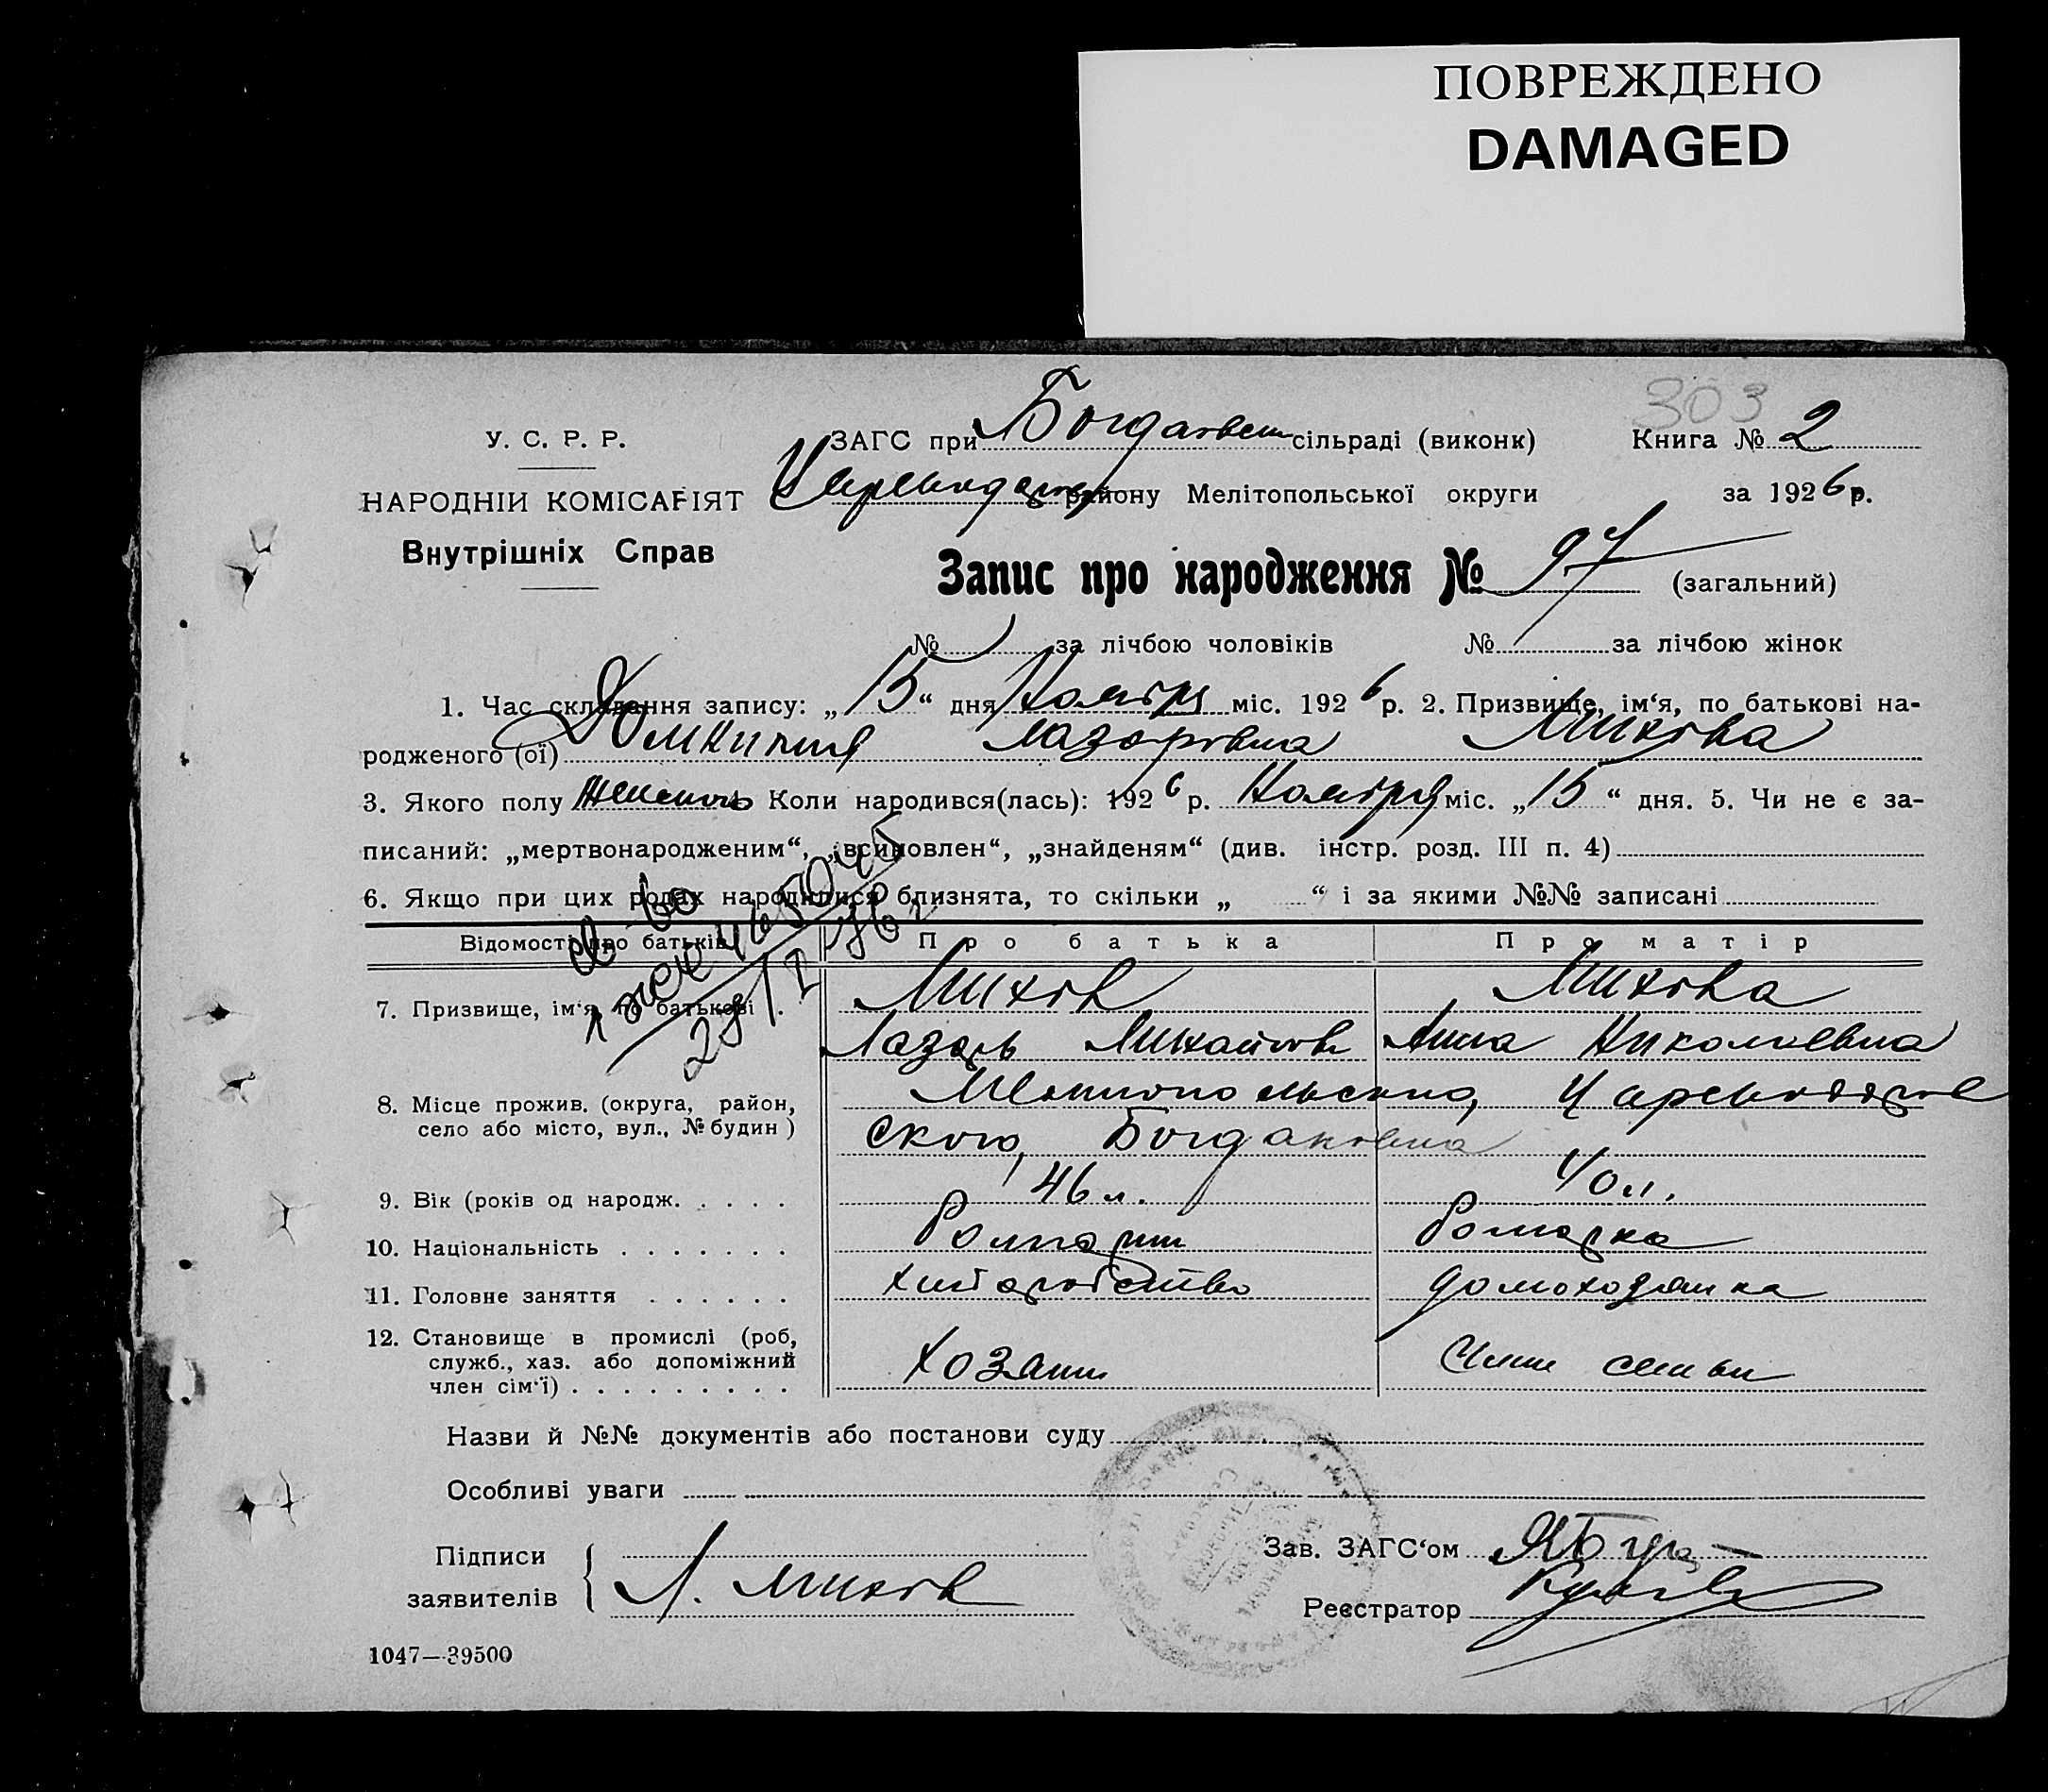 ПОВРЕЖДЕНО
DAMAGED
303
У. С. Р. Р. ЗАГС при сільраді (виконк) Книга № 2
НАРОДНІЙ КОМІСАРІЯТ району Мелітопольської округи за 1926 р.
Внутрішніх Справ
Запис про народження № 97 (загальний)
№ за лічбою чоловіків № за лічбою жінок
1. Час складання запису: „15“ дня Ноября міс. 1926 р. 2. Призвище, ім‘я, по батькові на-
родженого (ої) Домникия Лазаровна Михова
3. Якого полу Женского Коли народився(лась): 1926 р. Ноября міс. „15“ дня. 5. Чи не є за-
писаний: „мертвонародженим“, „всиновлен“, „знайденям“ (див. інстр. розд. III п. 4)
6. Якщо при цих родах народилися близнята, то скільки „ “ і за якими №№ записані
Відомості про батьків Про батька Про матір
7. Призвище, ім‘я, по батькові Михов Михова
Лазарь Михайлов Анна Николаевна
8. Місце прожив. (округа, район, село або місто, вул., № будин) Мелитопольского,
ского, Богдановка
9. Вік (років од народж. 46 л. 40 л.
10. Національність
11. Головне заняття хлиборобство домохозяйка
12. Становище в промислі (роб, служб., хаз. або допоміжний член сім‘ї) хозяин Член семьи
Назви й №№ документів або постанови суду
Особливі уваги
Підписи Зав. ЗАГС‘ом
заявителів Л. Михов
Реєстратор
1047—39500